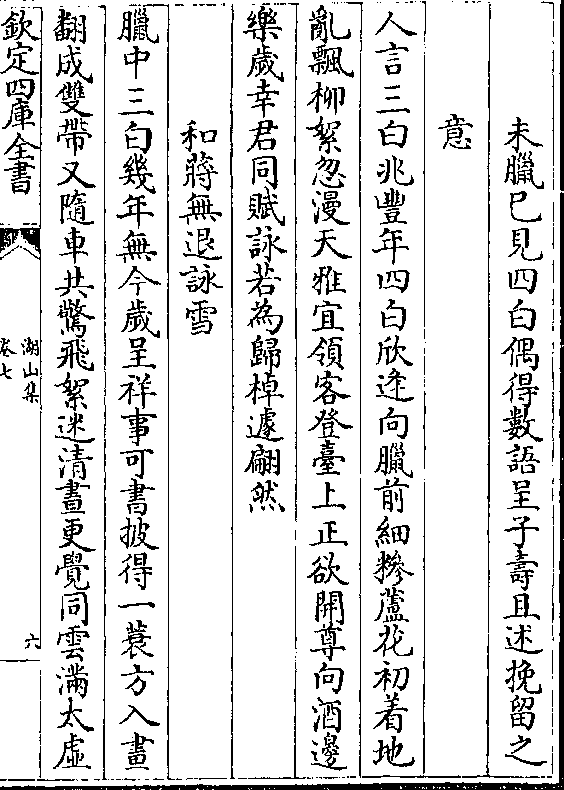 未臘已見四白偶得數語呈子壽且述挽留之
意
人言三白兆豐年四白欣逢向臘前細糝蘆花初着地
亂飄柳絮忽漫天雅宜領客登臺上正欲開尊向酒邊
樂歲幸君同賦詠若為歸棹遽翩然
和蔣無退詠雪
臘中三白幾年無今歲呈祥事可書披得一蓑方入畫
翻成雙帶又隨車共驚飛絮迷清晝更覺同雲滿太虛
欽定四庫全書
湖山集
卷七
六